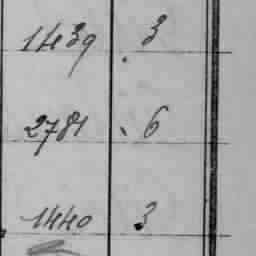 1439 3
2781 6
1440 3